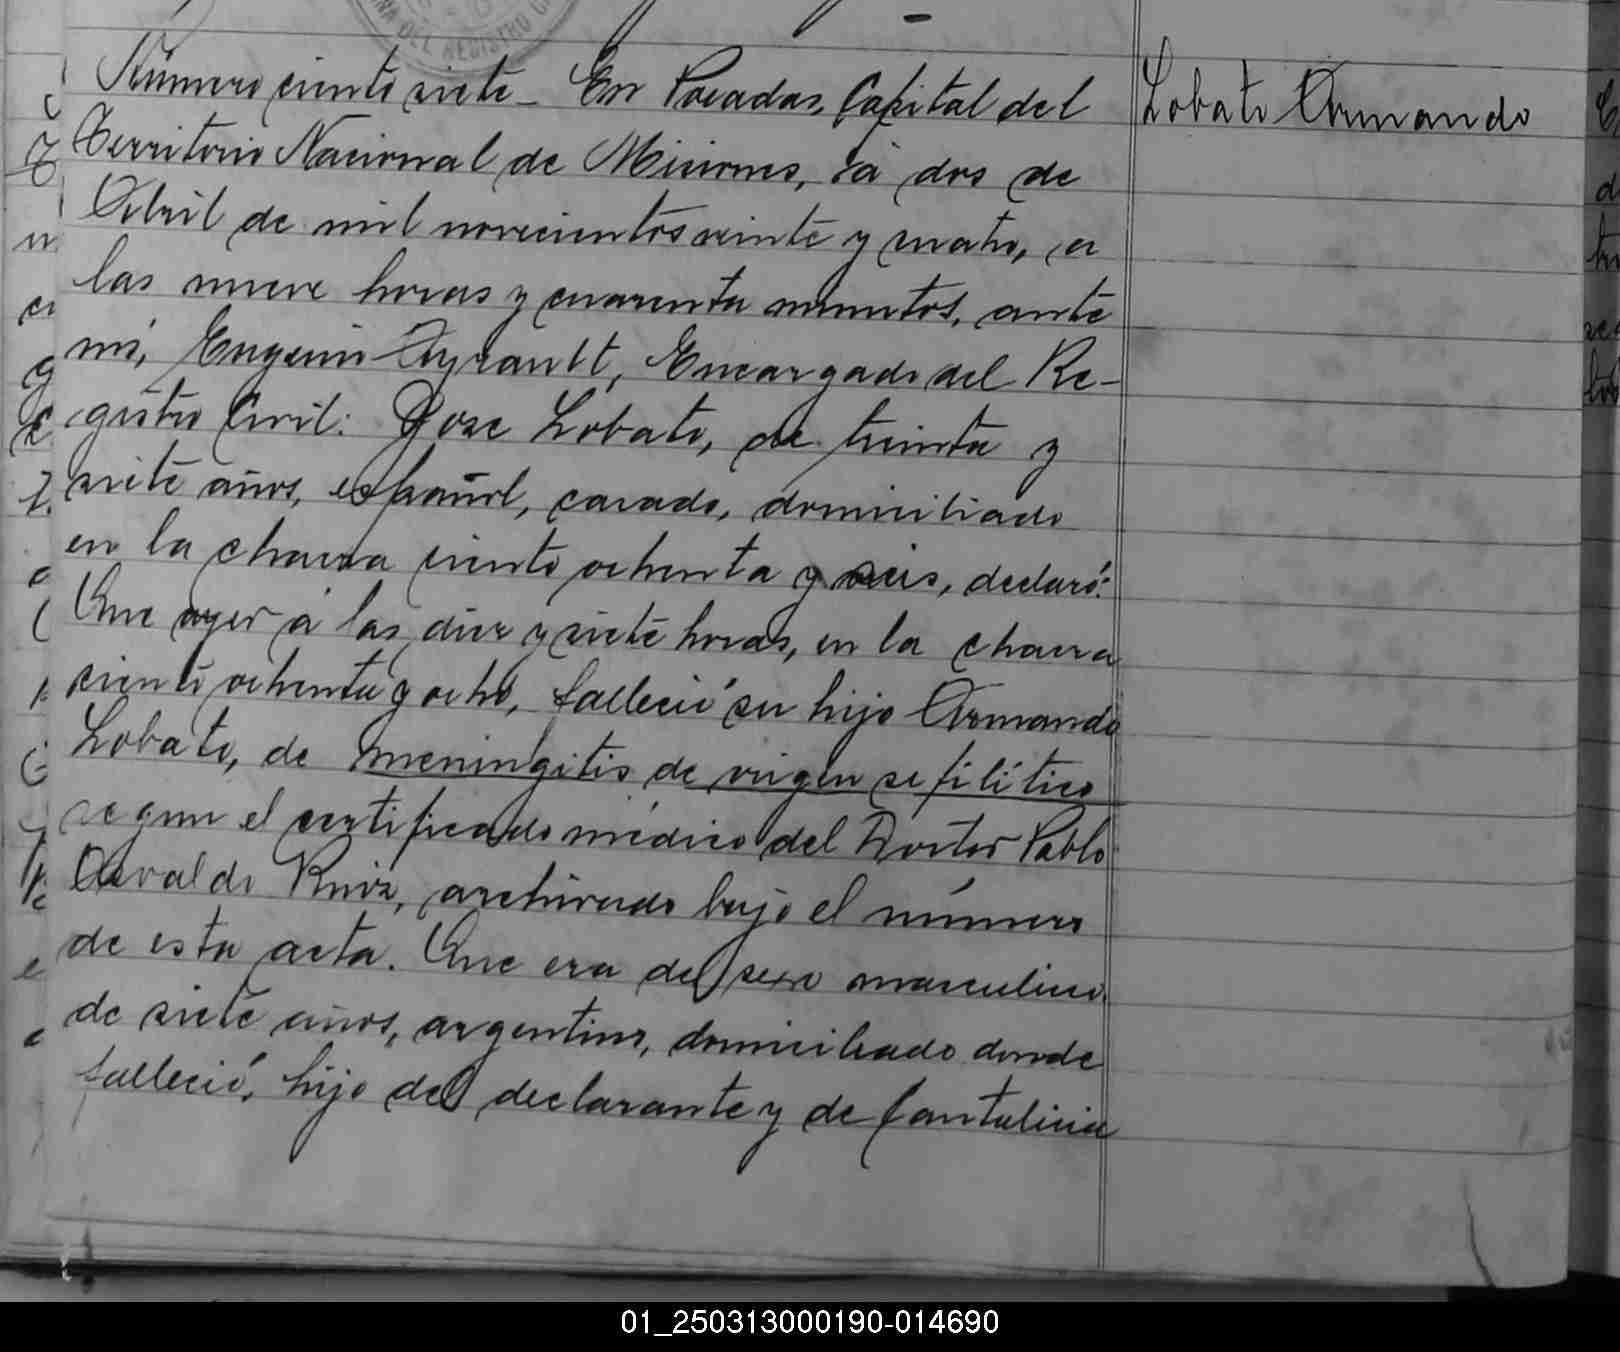 Número ciento siete - En Posadas, Capital del
Lobato Armando
Territorio Nacional de Misiones, a dos de
Abril de mil novecientos veinte y cuatro, a
las nueve horas y cuarenta minutos, ante
mi, Eugenio Ayrault, Encargado del Re-
gistro Civil: Jose Lobato, de treinta y
siete años, español, casado, domiciliado
en la chacra ciento ochenta y seis, declaró:
Que ayer á las diez y siete horas, en la chacra
ciento ochenta y ocho, falleció su hijo Armando
Lobato, de meningitis de origen sifilítico
segun el certificado médico del Doctor Pablo
Osvaldo Ruiz, archivado bajo el número
de esta acta. Que era del sexo masculino
de siete años, argentino, domiciliado donde
falleció, hijo del declarante y de Cantalicia
DEL REGISTRO
01_250313000190-014690